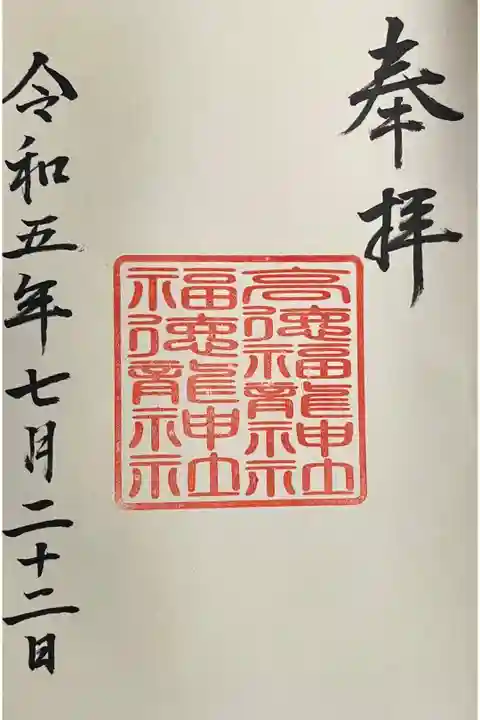 奉拝
高徳福龍神社
福徳龍神社
令和五年七月二十二日